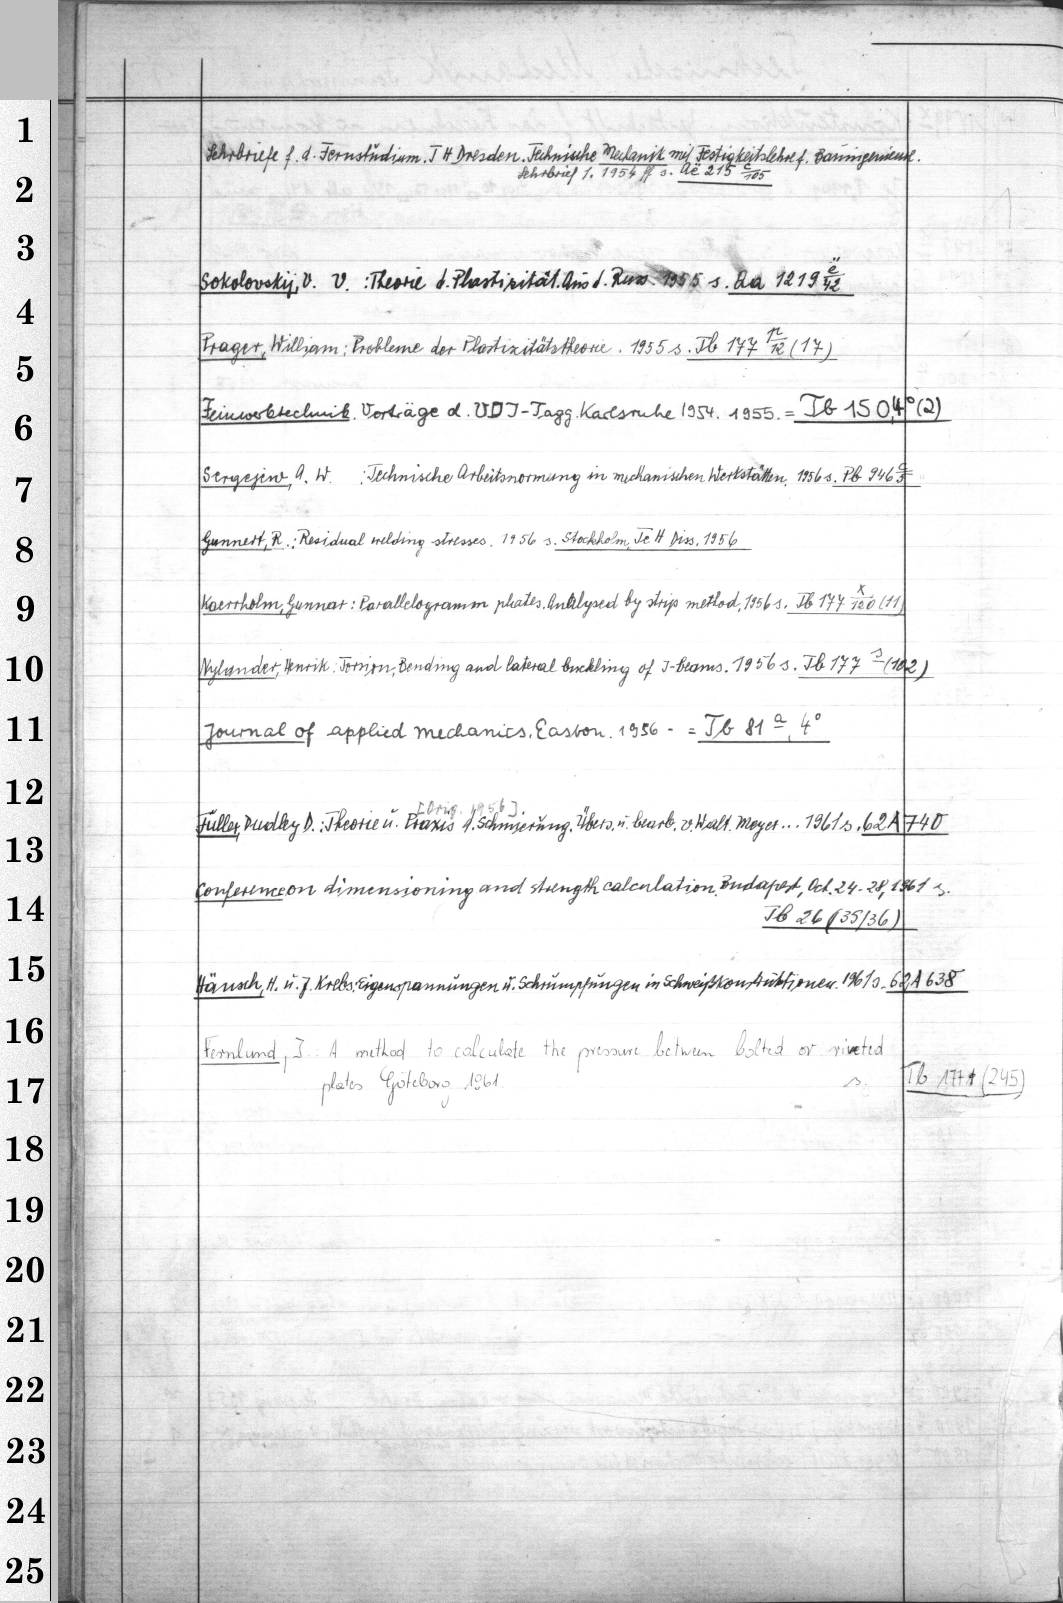 1
2
3
4
5
6
7
8
9
10
11
12
13
14
15
16
17
18
19
20
21
22
23
24
25
Lehrbriefe f. d. Fernstudium. TH Dresden. Technische Mechanik mit Festigkeitslehre f. Bauingenieure.
Lehrbrief 1. 1954 ff s. Ae 215 c/105
Sokolovskij, V. V. : Theorie d. Plastizität. Aus d. Russ. 1955 s. Aa 1219 ë/42
Prager, William: Probleme der Plastizitätstheorie. 1955 s. Tb 177 n/12 (17)
Feinwerktechnik. Vorträge d. VDI-Tagg. Karlsruhe 1954. 1955. = Tb 150,4° (2)
Sergejew, A. W. : Technische Arbeitsnormung in mechanischen Werkstätten. 1956 s. Pb 946
Gunnert, R.: Residual welding stresses. 1956 s. Stockholm, TeH Diss. 1956
Kaerrholm, Gunnar: Parallelogramm plates. Analysed by strip method, 1956 s. Tb 177 x/120 (11)
Nylander, Henrik: Torsion, Bending and lateral buckling of I-beams. 1956 s. Tb 177 s (102)
Journal of applied mechanics. Easton. 1956 - = Tb 81 a, 4°
[Orig. 1956].
Fuller, Dudley D.: Theorie u. Praxis d. Schmierung. Übers. u. bearb. v. Walt. Meyer... 1961 s. 62 A 740
Conference on dimensioning and strength calculation. Budapest, Oct. 24-28, 1961 s.
Tb 26 (35/36)
Hänsch, H. u. J. Krebs: Eigenspannungen u. Schrumpfungen in Schweißkonstruktionen. 1961 s. 62 A 638
Fernlund, I.: A method to calculate the pressure between bolted or riveted
plates Göteborg 1961. s. Tb 177 (245)